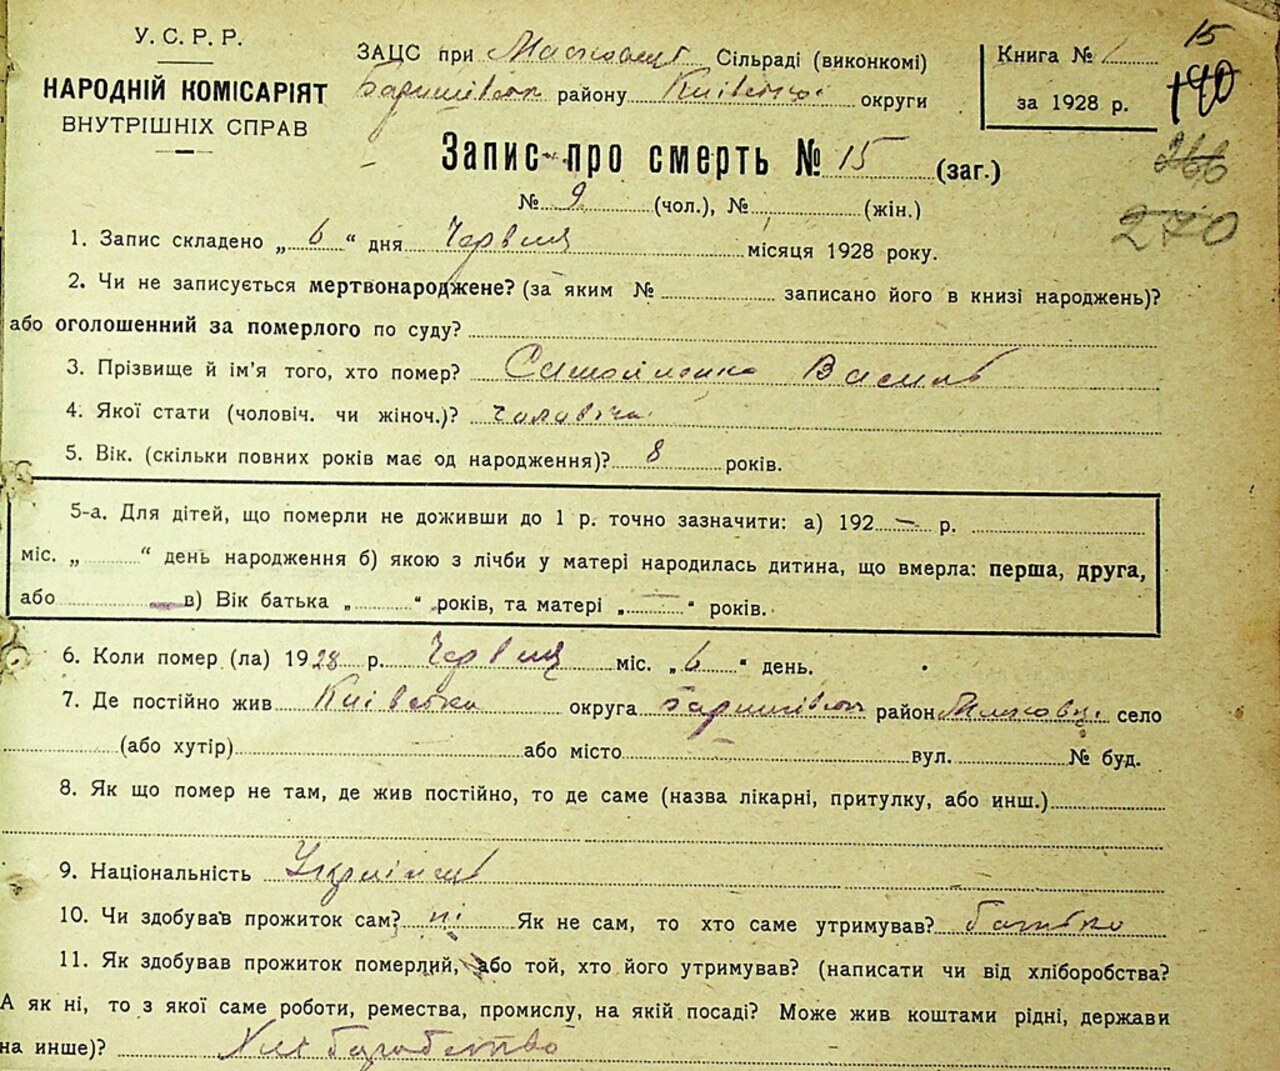 У. С. Р. Р.
НАРОДНІЙ КОМІСАРІЯТ
ВНУТРІШНІХ СПРАВ
ЗАЦС при Сільраді (виконкомі)
району округи
Книга № 1
за 1928 р.
15
190
266
270
Запис про смерть № 15 (заг.)
№ 9 (чол.), № (жін.)
1. Запис складено „ 6 “ дня Червня місяця 1928 року.
2. Чи не записується мертвонароджене? (за яким № записано його в книзі народжень)?
або оголошенний за померлого по суду?
3. Прізвище й ім'я того, хто помер? Самойленко Василь
4. Якої стати (чоловіч. чи жіноч.)? чоловіча
5. Вік. (скільки повних років має од народження)? 8 років.
5-а. Для дітей, що померли не доживши до 1 р. точно зазначити: а) 192 — р.
міс. „ “ день народження б) якою з лічби у матері народилась дитина, що вмерла: перша, друга,
або в) Вік батька „ “ років, та матері „ “ років.
6. Коли помер (ла) 1928 р. Червня міс. „ 6 “ день.
7. Де постійно жив Київська округа район село
(або хутір) або місто вул. № буд.
8. Як що помер не там, де жив постійно, то де саме (назва лікарні, притулку, або инш.)
9. Національність Українець
10. Чи здобував прожиток сам? ні Як не сам, то хто саме утримував? батько
11. Як здобував прожиток померлий, або той, хто його утримував? (написати чи від хліборобства?
А як ні, то з якої саме роботи, ремества, промислу, на якій посаді? Може жив коштами рідні, держави
на инше)?